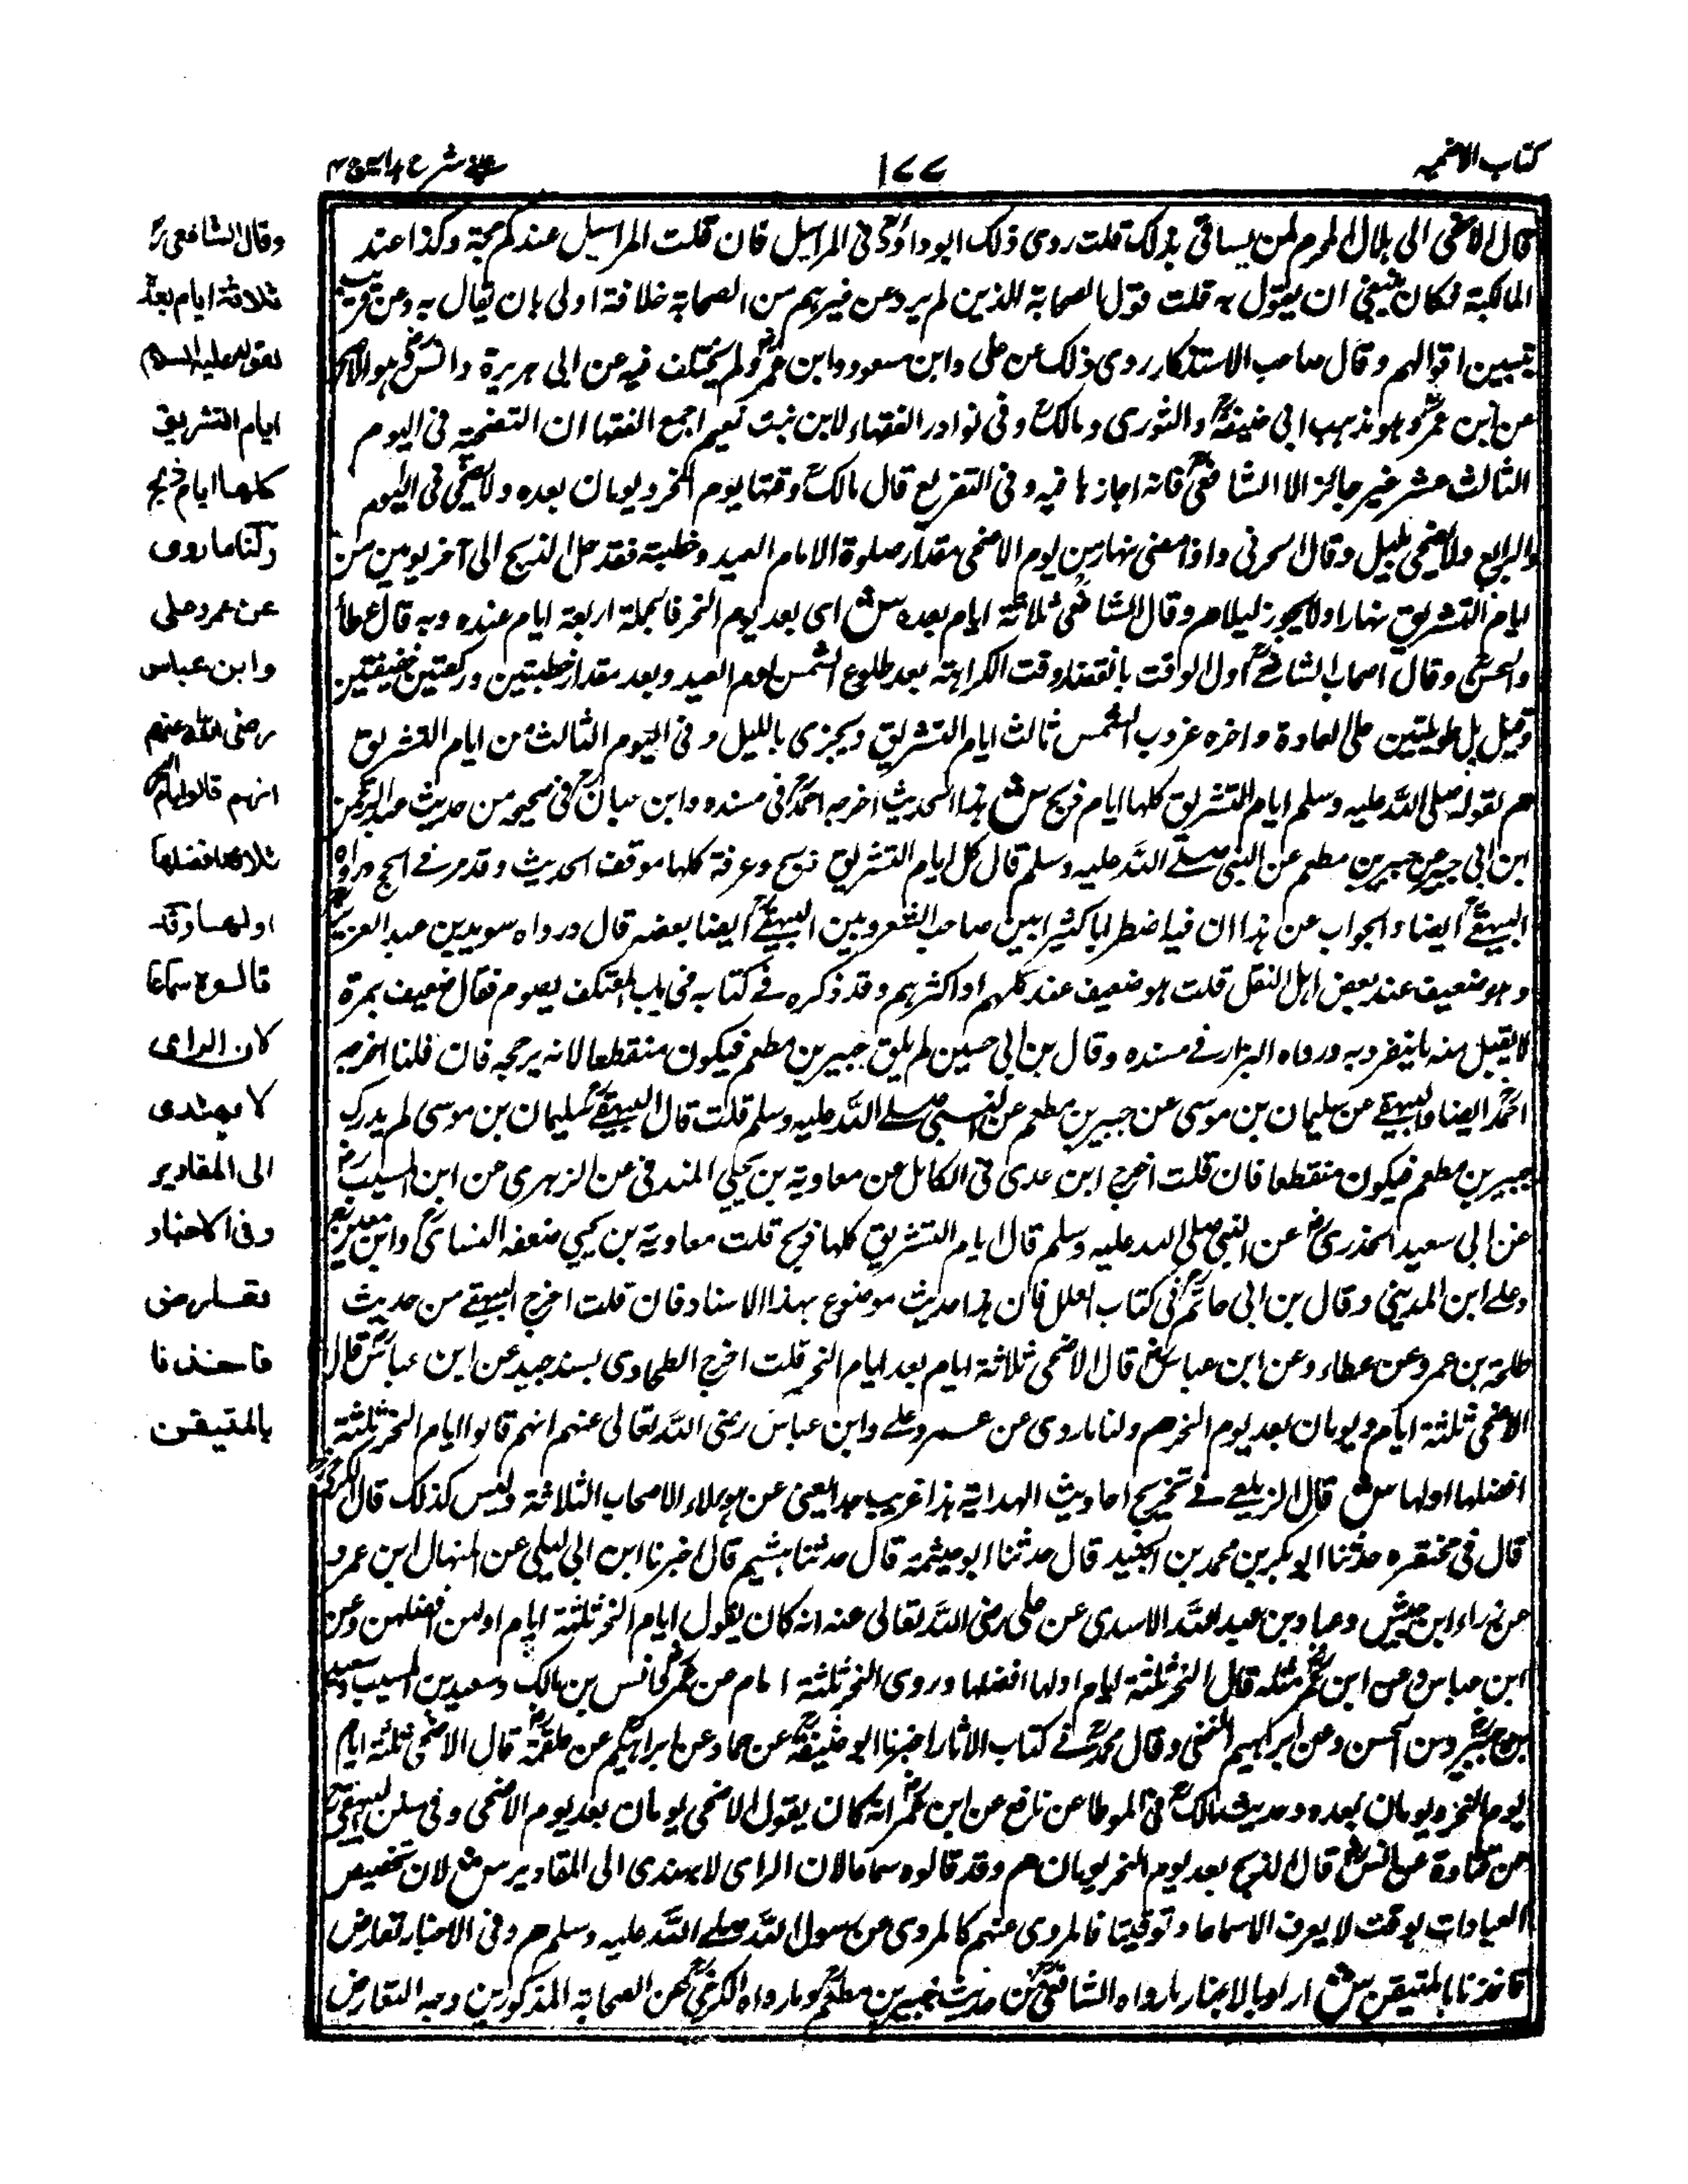 كتاب الاضحية
١٧٧
عينى شرح هداية ج ٤
قال الاضحى الى هلال المحرم لمن يستانى بذلك قلت روى ذلك ابو داودؒ فى المراسيل فان قلت المراسيل عندكم حجة وكذا عند
المالكية فكان ينبغى ان يقول به قلت قول الصحابة الذين لم يرد عن غيرهم من الصحابة خلافه اولى بان يقال به وعن قريب
يتبين اقوالهم وقال صاحب الاستذكار روى ذلك عن على وابن مسعود وابن عمرؓ ولم يختلف فيه عن ابى هريرة وانسؓ هو الاصح
عن ابن عمرؓ وهو مذهب ابى حنيفةؒ والثورى ومالكؒ وفى نوادر الفقهاء لابن بنت نعيم اجمع الفقها ان التضحية فى اليوم
الثالث عشر غير جائز الا الشافعىؒ فانه اجازها فيه وفى التفريع قال مالكؒ وقتها يوم النحر ويومان بعده ولا يضحى فى اليوم
الرابع ولا يضحى بليل وقال الخرقى واذا مضى نهار من يوم الاضحى مقدار صلوة الامام العيد وخطبته فقد حل الذبح الى آخر يومين من
ايام التشريق نهارا ولا يجوز ليلا هم وقال الشافعىؒ ثلاثة ايام بعده ش اى بعد يوم النحر فالجملة اربعة ايام عنده وبه قال عطاؒ
والحسنؒ وقال اصحاب الشافعىؒ اول الوقت بانقضاء وقت الكراهة بعد طلوع الشمس يوم العيد وبعد مقدار خطبتين وركعتين خفيفتين
وقيل بل طويلتين على العادة واخره غروب الشمس ثالث ايام التشريق ويجزى بالليل وفى اليوم الثالث من ايام التشريق
هم لقوله صلى الله عليه وسلم ايام التشريق كلها ايام ذبح ش هذا الحديث اخرجه احمدؒ فى مسنده وابن حبانؒ فى صحيحه من حديث عبد الرحمن
ابن ابى حسين عن جبير بن مطعم عن النبى صلے الله عليه وسلم قال كل ايام التشريق ذبح وعرفة كلها موقف الحديث وقد مر فے الحج ورواه
البيهقےؒ ايضا والجواب عن هذا ان فيه اضطرابا كثيرا بين صاحب التنقيح وبين البيهقےؒ ايضا بعضه قال ورواه سويد بن عبد العزيز
وهو ضعيف عند بعض اهل النقل قلت هو ضعيف عند كلهم او اكثرهم وقد ذكره فے كتابه فى باب المعتكف يصوم فقال ضعيف بمرة
لا يقبل منه ما ينفرد به ورواه البزار فے مسنده وقال بن ابى حسين لم يلق جبير بن مطعم فيكون منقطعا فان قلنا اخرجه
احمدؒ ايضا والبيهقے عن سليمان بن موسى عن جبير بن مطعم عن النبى صلے الله عليه وسلم قلت قال البيهقےؒ سليمان بن موسى لم يدرك
جبير بن مطعم فيكون منقطعا فان قلت اخرج ابن عدى فى الكامل عن معاوية بن يحيى الصدفى عن الزهرى عن ابن المسيبؓ
عن ابى سعيد الخدرىؓ عن النبى صلى الله عليه وسلم قال ايام التشريق كلها ذبح قلت معاوية بن يحيى ضعفه النسائىؒ وابن معين
وعلے ابن المدينى وقال بن ابى حاتمؒ فى كتاب العلل فان هذا حديث موضوع بهذا الاسناد فان قلت اخرج البيهقے من حديث
طلحة بن عمرو عن عطاء وعن ابن عباسؓ قال الاضحى ثلاثة ايام بعد ايام النحر قلت اخرج الطحاوى بسند جيد عن ابن عباسؓ قال
الاضحى ثلثة ايام ويومان بعد يوم النحر هم ولنا ما روى عن عمر وعلے وابن عباس رضى الله تعالى عنهم انهم قالوا ايام النحر ثلثة
افضلها اولها ش قال الزيلعے فے تخريج احاديث الهداية هذا غريب جدا يعنى عن هولاء الاصحاب الثلاثة وليس كذلك قال الكرخىؒ
قال فى مختصره حدثنا ابو بكر بن محمد بن الجنيد قال حدثنا ابو خيثمة قال حدثنا هشيم قال اخبرنا ابن ابى ليلى عن المنهال ابن عمرو
عن زر ابن حبيش وعباد بن عبد الله الاسدى عن على رضى الله تعالى عنه انه كان يقول ايام النحر ثلثة ايام اولهن افضلهن وعن
ابن عباس وعن ابن عمرؓ مثله قال النحر ثلثة ايام اولها افضلها وروى النحر ثلثة ايام عن عمرؓ وانس بن مالك وسعيد بن المسيب وسعيد
بن جبيرؒ وعن الحسن وعن ابراهيم النخعى وقال محمدؒ فے كتاب الاثار اخبرنا ابو حنيفةؒ عن حماد عن ابراهيم عن علقمةؒ قال الاضحى ثلثة ايام
يوم النحر ويومان بعده وحديث مالكؒ فى الموطا عن نافع عن ابن عمرؓ انه كان يقول الاضحى يومان بعد يوم الاضحى وفى سنن البيهقىؒ
عن قتادة عن انسؓ قال الذبح بعد يوم النحر يومان هم وقد قالوه سماعا لان الراى لا يهتدى الى المقادير ش لان تخصيص
العبادات بوقت لا يعرف الا سماعا وتوقيتا فالمروى عنهم كالمروى عن رسول الله صلے الله عليه وسلم هم وفى الاخبار تعارض
فاخذنا بالمتيقن ش اراد بالاخبار ما رواه الشافعىؒ من حديث جبير بن مطعمؓ وما رواه الكرخىؒ عن الصحابة المذكورين وجه التعارض
وقال الشافعىؒ
ثلاثة ايام بعده
لقوله عليه السلام
ايام التشريق
كلها ايام ذبح
ولنا ما روى
عن عمر وعلى
وابن عباس
رضى الله عنهم
انهم قالوا ايام النحر
ثلاثة افضلها
اولها وقد
قالوه سماعا
لان الراى
لا يهتدى
الى المقادير
وفى الاخبار
تعارض
فاخذنا
بالمتيقن